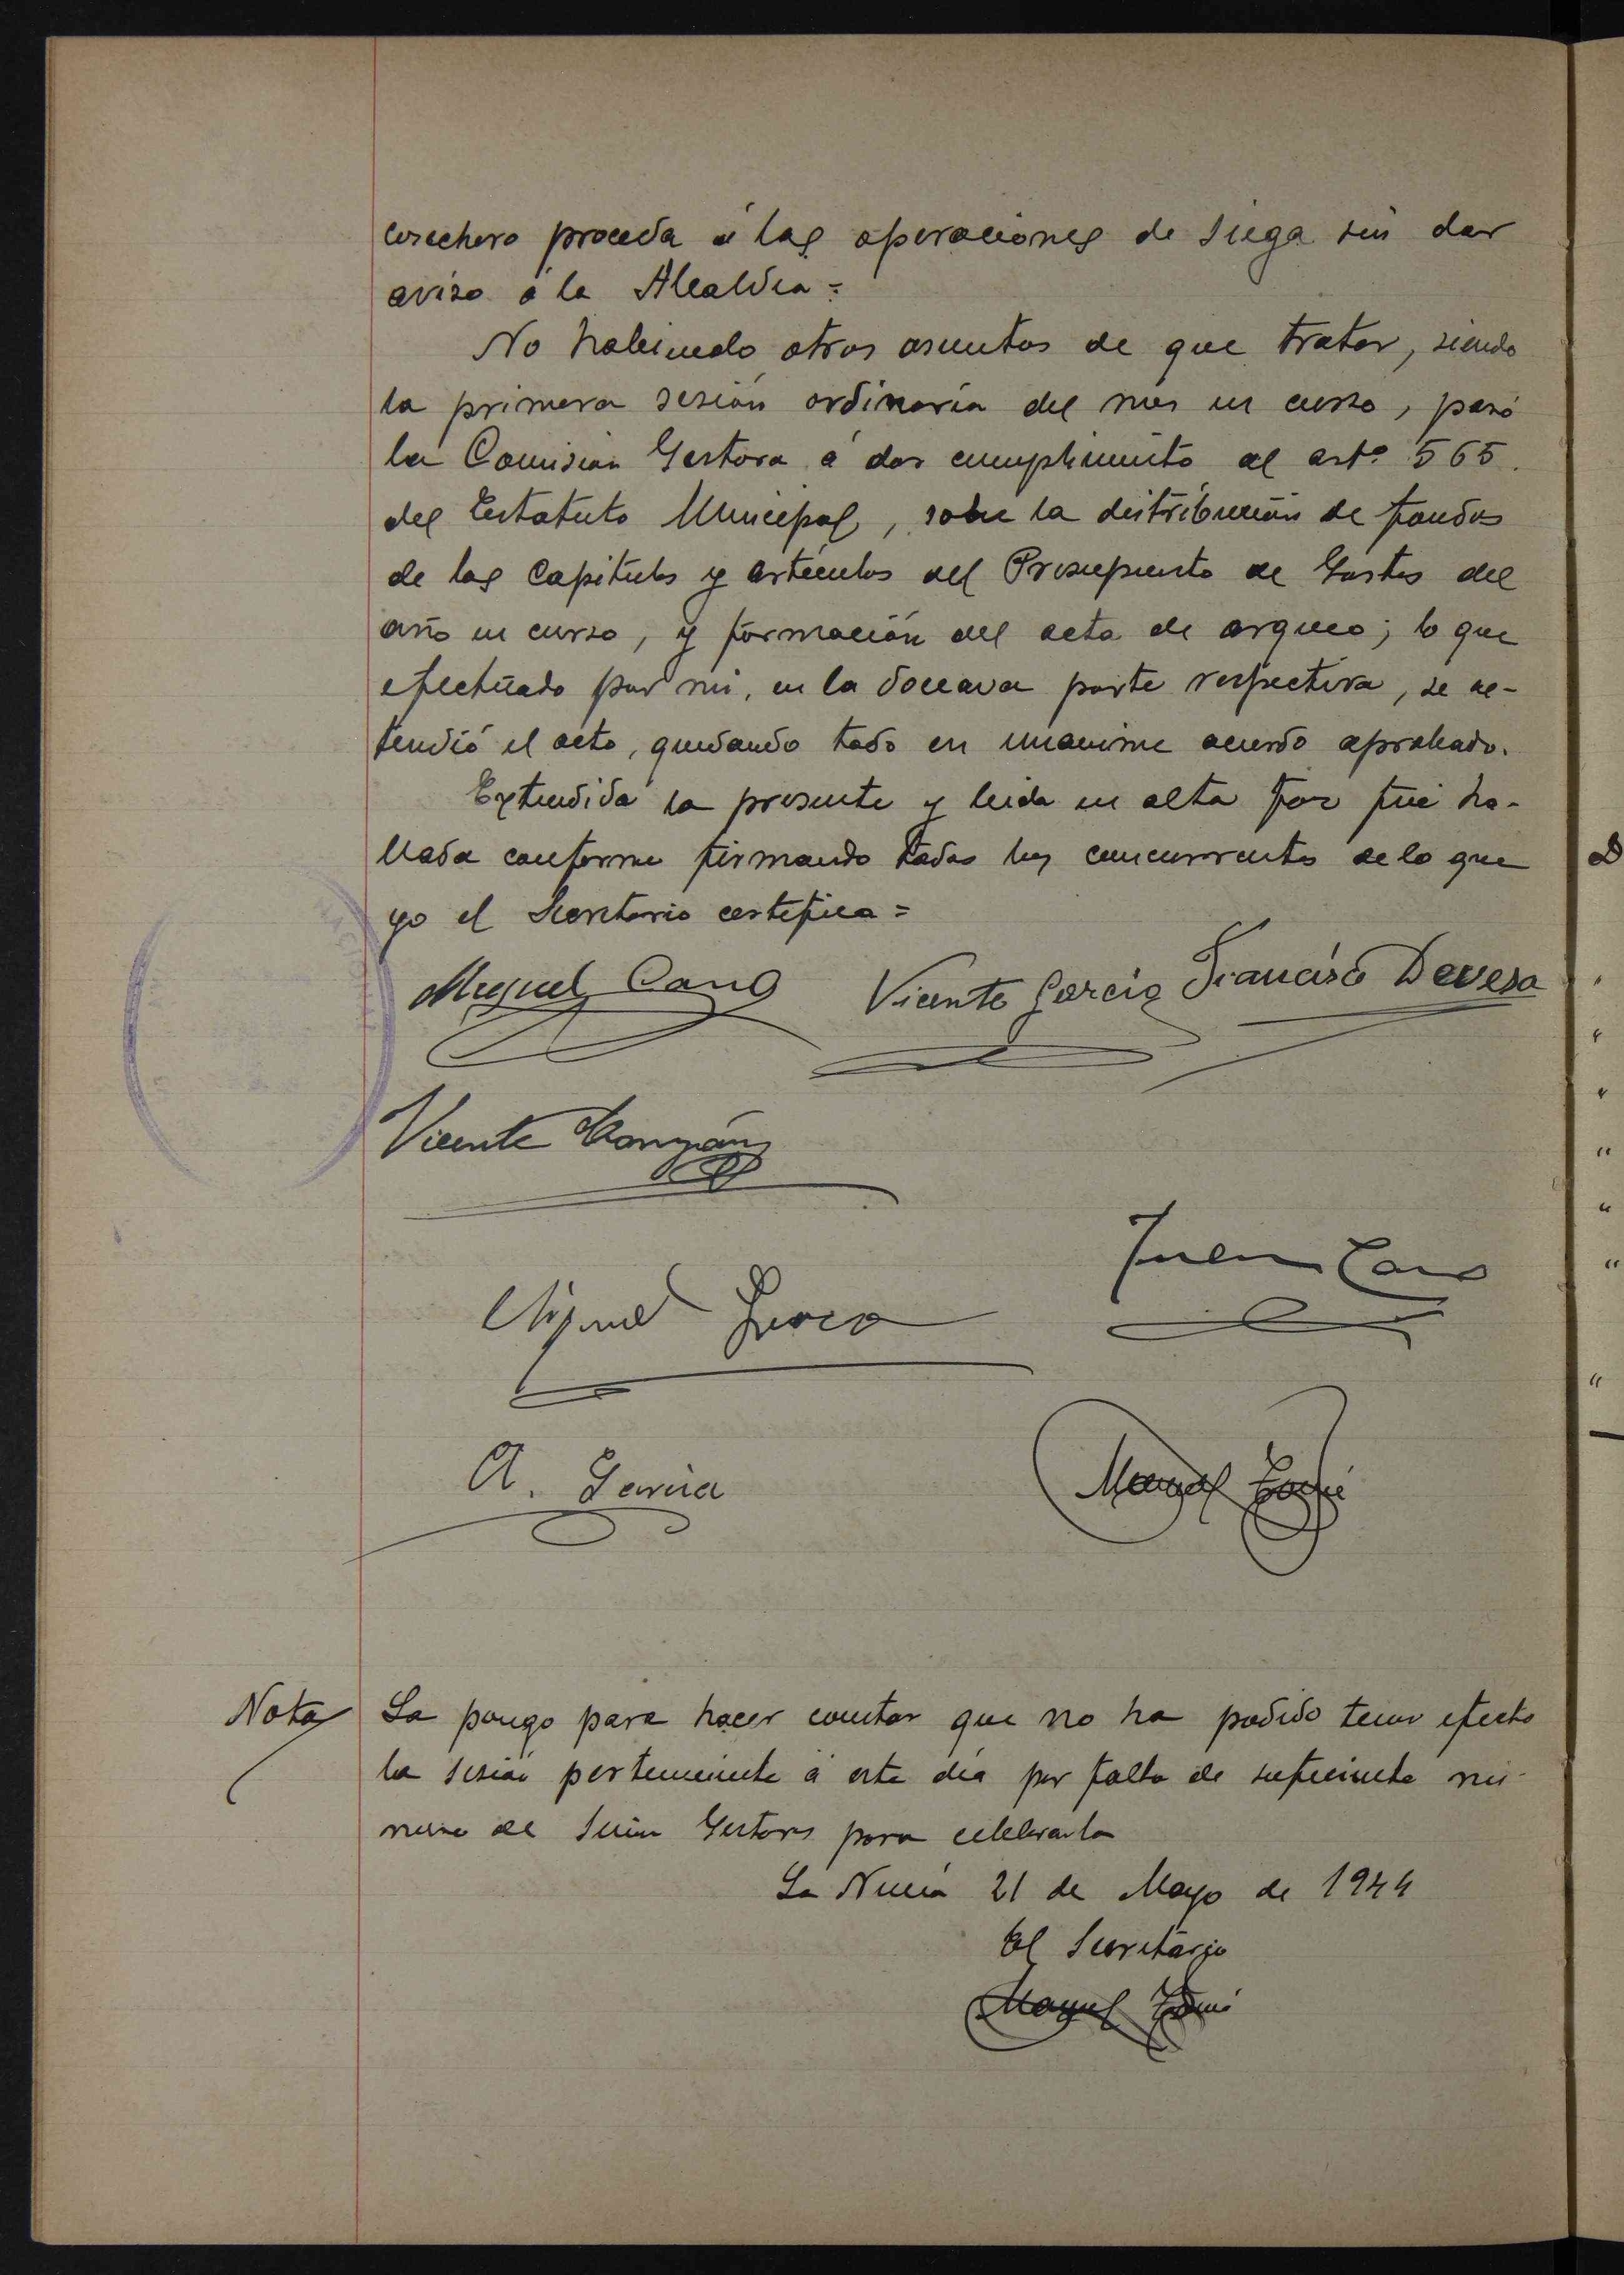 cosechero proceda á las operaciones de siega sin dar
aviso á la Alcaldia =
No habiendo otros asuntos de que tratar, siendo
la primera sesión ordinaria del mes en curso, pasó
la Comision Gestora á dar cumplimiento al artº 565.
del Estatuto Municipal, sobre la distribución de fondos
de los Capitulos y artículos del Presupuesto de Gastos del
año en curso, y formación del acta de arqueo; lo que
efectuado por mi, en la doceava parte respectiva, se ex-
tendió el acta, quedando todo en unanime acuerdo aprobado.
Extendida la presente y leida en alta voz fué ha-
llada conforme firmando todos los concurrentes de lo que
yo el Secretario certifico =
Miguel Cano Vicente Garcia Francisco Devesa
Vicente
Juan Cano
Miguel
A. Garcia
Manuel
Nota La pongo para hacer constar que no ha podido tener efecto
la sesión perteneciente á este día por falta de suficiente nú-
mero de Señores Gestores para celebrarla
La Nucia 21 de Mayo de 1944
El Secretario
Manuel